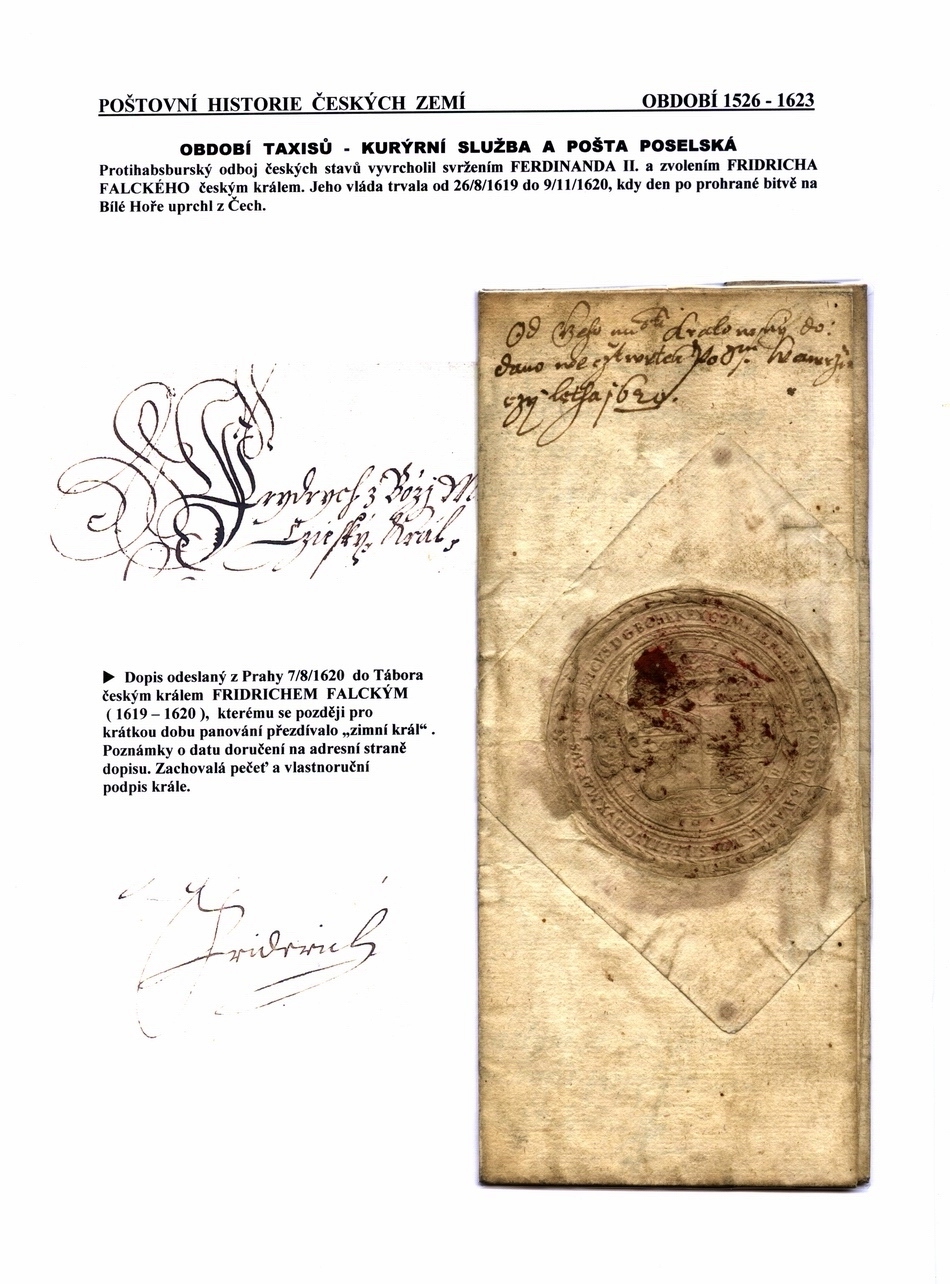 POŠTOVNÍ HISTORIE ČESKÝCH ZEMÍ
OBDOBÍ 1526 - 1623
OBDOBÍ TAXISŮ - KURÝRNÍ SLUŽBA A POŠTA POSELSKÁ
Protihabsburský odboj českých stavů vyvrcholil svržením FERDINANDA II. a zvolením FRIDRICHA
FALCKÉHO českým králem. Jeho vláda trvala od 26/8/1619 do 9/11/1620, kdy den po prohrané bitvě na
Bílé Hoře uprchl z Čech.
Od Kralowsky do:
dano we cztwrtek Po
letha 1620.
Frydrych z Boží M
Czieský Král,
▶ Dopis odeslaný z Prahy 7/8/1620 do Tábora
českým králem FRIDRICHEM FALCKÝM
( 1619 – 1620 ), kterému se později pro
krátkou dobu panování přezdívalo „zimní král“ .
Poznámky o datu doručení na adresní straně
dopisu. Zachovalá pečeť a vlastnoruční
podpis krále.
Friderich